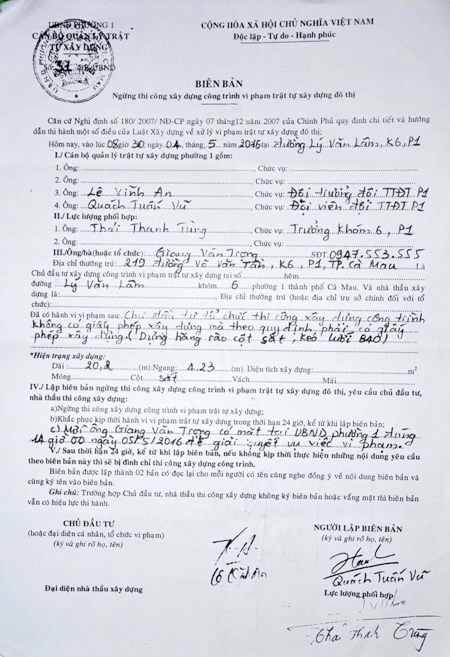 UBND PHƯỜNG 1
CỘNG HÒA XÃ HỘI CHỦ NGHĨA VIỆT NAM
CÁN BỘ QUẢN LÝ TRẬT
Độc lập - Tự do - Hạnh phúc
TỰ XÂY DỰNG
Số 31
BIÊN BẢN
Ngừng thi công xây dựng công trình vi phạm trật tự xây dựng đô thị
Căn cứ Nghị định số 180/ 2007/ NĐ-CP ngày 07 tháng12 năm 2007 của Chính Phủ quy định chi tiết và hướng
dẫn thi hành một số điều của Luật Xây dựng về xử lý vi phạm trật tự xây dựng đô thị;
Hôm nay, vào lúc 08 giờ 30 ngày 04 tháng 5 năm 2016 tại đường Lý Văn Lâm, K6, P1
I./ Cán bộ quản lý trật tự xây dựng phường 1 gồm:
1. Ông: , Chức vụ:
2. Ông: , Chức vụ:
3. Ông: Lê Vĩnh An Chức vụ: Đội trưởng đội TTĐT P1
4. Ông: Quách Tuấn Vũ Chức vụ: Đội viên đội TTĐT P1
II./ Lực lượng phối hợp:
1. Ông: Thái Thanh Tùng, Chức vụ: Trưởng khóm 6, P1
III./Ông/bà(hoặc tổ chức): Giang Văn Trọng SĐT: 0947.553.555
Địa chỉ thường trú: 219 đường Võ Văn Tần, K6, P1, TP. Cà Mau là
Chủ đầu tư xây dựng công trình vi phạm trật tự xây dựng tại số hẻm
đường Lý Văn Lâm khóm 6 phường 1 thành phố Cà Mau. Và nhà thầu xây
dựng là: Địa chỉ thường trú (hoặc địa chỉ trụ sở chính đối với tổ
chức):
Đã có hành vi vi phạm sau: Chủ đầu tư tổ chức thi công xây dựng công trình
không có giấy phép xây dựng mà theo quy định phải có giấy
phép xây dựng. (Dựng hàng rào cột sắt, kéo lưới B40)
*Hiện trạng xây dựng:
Dài : 20,2 (m).Ngang: 4.23 (m). Diện tích xây dựng: m²
Móng Cột sắt Vách Mái
IV./ Lập biên bản ngừng thi công công trình vi phạm trật tự xây dựng đô thị, yêu cầu chủ đầu tư,
nhà thầu thi công xây dựng:
a)Ngừng thi công xây dựng công trình vi phạm;
b)Khắc phục kịp thời hành vi vi phạm trật tự xây dựng trong thời hạn 24 giờ, kể từ khi lập biên bản;
c) Mời ông Giang Văn Trọng có mặt tại UBND phường 1 đúng
14 giờ 00 ngày 05/5/2016 để giải quyết vụ việc vi phạm.
V./ Sau thời hạn 24 giờ, kể từ khi lập biên bản, nếu không kịp thời thực hiện những nội dung yêu cầu
theo biên bản này thì sẽ bị đình chỉ thi công xây dựng công trình.
Biên bản được lập thành 02 bản có đọc lại cho mỗi người có tên cùng nghe đồng ý về nội dung biên bản và
cùng ký tên vào biên bản.
Ghi chú: Trường hợp Chủ đầu tư, nhà thầu thi công xây dựng không ký biên bản hoặc vắng mặt thì biên bản
vẫn có hiệu lực thi hành.
CHỦ ĐẦU TƯ
NGƯỜI LẬP BIÊN BẢN
(hoặc đại diện cá nhân, tổ chức vi phạm)
(ký và ghi rõ họ, tên)
(ký và ghi rõ họ, tên)
Lê Vĩnh An
Quách Tuấn Vũ
Đại diện nhà thầu xây dựng
Lực lượng phối hợp
Thái Thanh Tùng